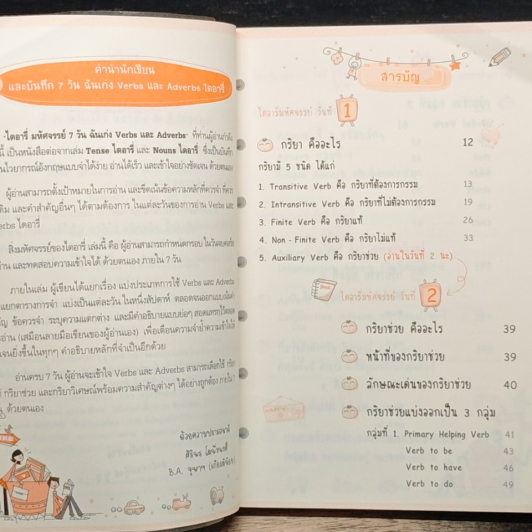 คำนำนักเขียน
และบันทึก 7 วัน ฉันเก่ง Verbs และ Adverbs ไดอารี่
"ไดอารี่ มหัศจรรย์ 7 วัน ฉันเก่ง Verbs และ Adverbs" ที่ท่านผู้อ่านกำลัง
นี้ เป็นหนังสือต่อจากเล่ม Tense ไดอารี่ และ Nouns ไดอารี่ ซึ่งเป็นบันทึก
ไวยากรณ์อังกฤษแบบจำได้ง่าย อ่านได้เร็ว และเข้าใจอย่างชัดเจน ด้วยตนเอง
ผู้อ่านสามารถตั้งเป้าหมายในการอ่าน และขีดเน้นข้อความหลักที่ควรจำ ที่ควร
เติม และคำสำคัญอื่นๆ ได้ตามต้องการ ในแต่ละวันของการอ่าน Verbs และ
Verbs ไดอารี่
สิ่งมหัศจรรย์ของไดอารี่ เล่มนี้ คือ ผู้อ่านสามารถกำหนดกรอบ
อ่าน และทดสอบความเข้าใจได้ ด้วยตนเอง ภายใน 7 วัน
ภายในเล่ม ผู้เขียนได้แยกเรื่อง แบ่งประเภทการใช้ Verbs และ Adverbs
แยกตารางการจำ แบ่งเป็นแต่ละวันในหนึ่งสัปดาห์ ตลอดจนออกแบบเน้นคำ
ข้อควรจำ ระบุความแตกต่าง และมีคำอธิบายแบบย่อๆ
อ่าน (เสมือนลายมือเขียนของผู้อ่านเอง) เพื่อเตือนความจำย้ำความเข้าใจให้
ยิ่งขึ้นในทุกๆ คำอธิบายหลักที่จำเป็นอีกด้วย
อ่านครบ 7 วัน ผู้อ่านจะเข้าใจ Verbs และ Adverbs สามารถเลือกใช้ กริยา
กริยาช่วย และกริยาวิเศษณ์พร้อมความสำคัญต่างๆ ได้อย่างถูกต้อง ภายใน 7
ด้วยตนเอง
ด้วยความปรารถนาดี
B.A. จุฬาฯ (เกียรตินิยม)
สารบัญ
ไดอารี่มหัศจรรย์ วันที่ 1
กริยา คืออะไร 12
กริยามี 5 ชนิด ได้แก่
1. Transitive Verb คือ กริยาที่ต้องการกรรม 13
2. Intransitive Verb คือ กริยาที่ไม่ต้องการกรรม 19
3. Finite Verb คือ กริยาแท้ 26
4. Non - Finite Verb คือ กริยาไม่แท้ 33
5. Auxiliary Verb คือ กริยาช่วย (อ่านในวันที่ 2 นะ)
ไดอารี่มหัศจรรย์ วันที่ 2
กริยาช่วย คืออะไร 39
หน้าที่ของกริยาช่วย 39
ลักษณะเด่นของกริยาช่วย 40
กริยาช่วยแบ่งออกเป็น 3 กลุ่ม
กลุ่มที่ 1. Primary Helping Verb 41
Verb to be 43
Verb to have 46
Verb to do 49